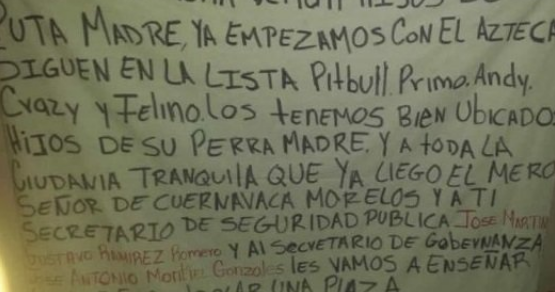 PUTA MADRE, YA EMPEZAMOS CON EL AZTECA
SIGUEN EN LA LISTA Pitbull. Primo. Andy.
Crazy y Felino. los tENEMOS BIEN UbICADOS
HIJOS DE SU PERRA MADRE. Y A tODA LA
CIUDANIA TRANQUIlA QUE YA LlEGO EL MERO
SEÑOR DE CUERNAVACA MORELOS Y A TI
SECRETARIO DE SEGURIDAD PUBLICA JOSE MARTIN
GUSTAVO RAMIREZ Romero Y Al SECVETARIO DE GobeVNANZA
JOSE ANTONIO Gonzales lES VAMOS A ENSEÑAR
UNA PlAZA